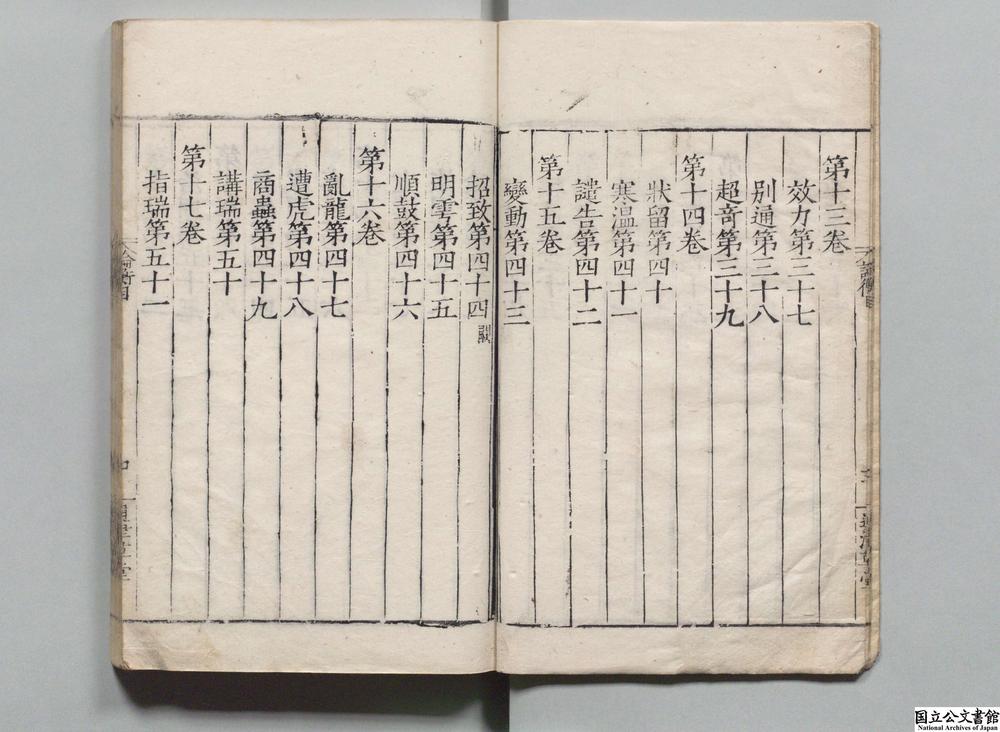 第十三卷
效力第三十七
别通第三十八
超竒第三十九
第十四卷
狀留第四十
寒温第四十一
譴告第四十二
第十五卷
變動第四十三
招致第四十四闕
明雩第四十五
順鼓第四十六
第十六卷
亂龍第四十七
遭虎第四十八
商蟲第四十九
講瑞第五十
第十七卷
指瑞第五十一
論衡目
論衡目
通津草堂
通津草堂
国立公文書館
National Archives of Japan